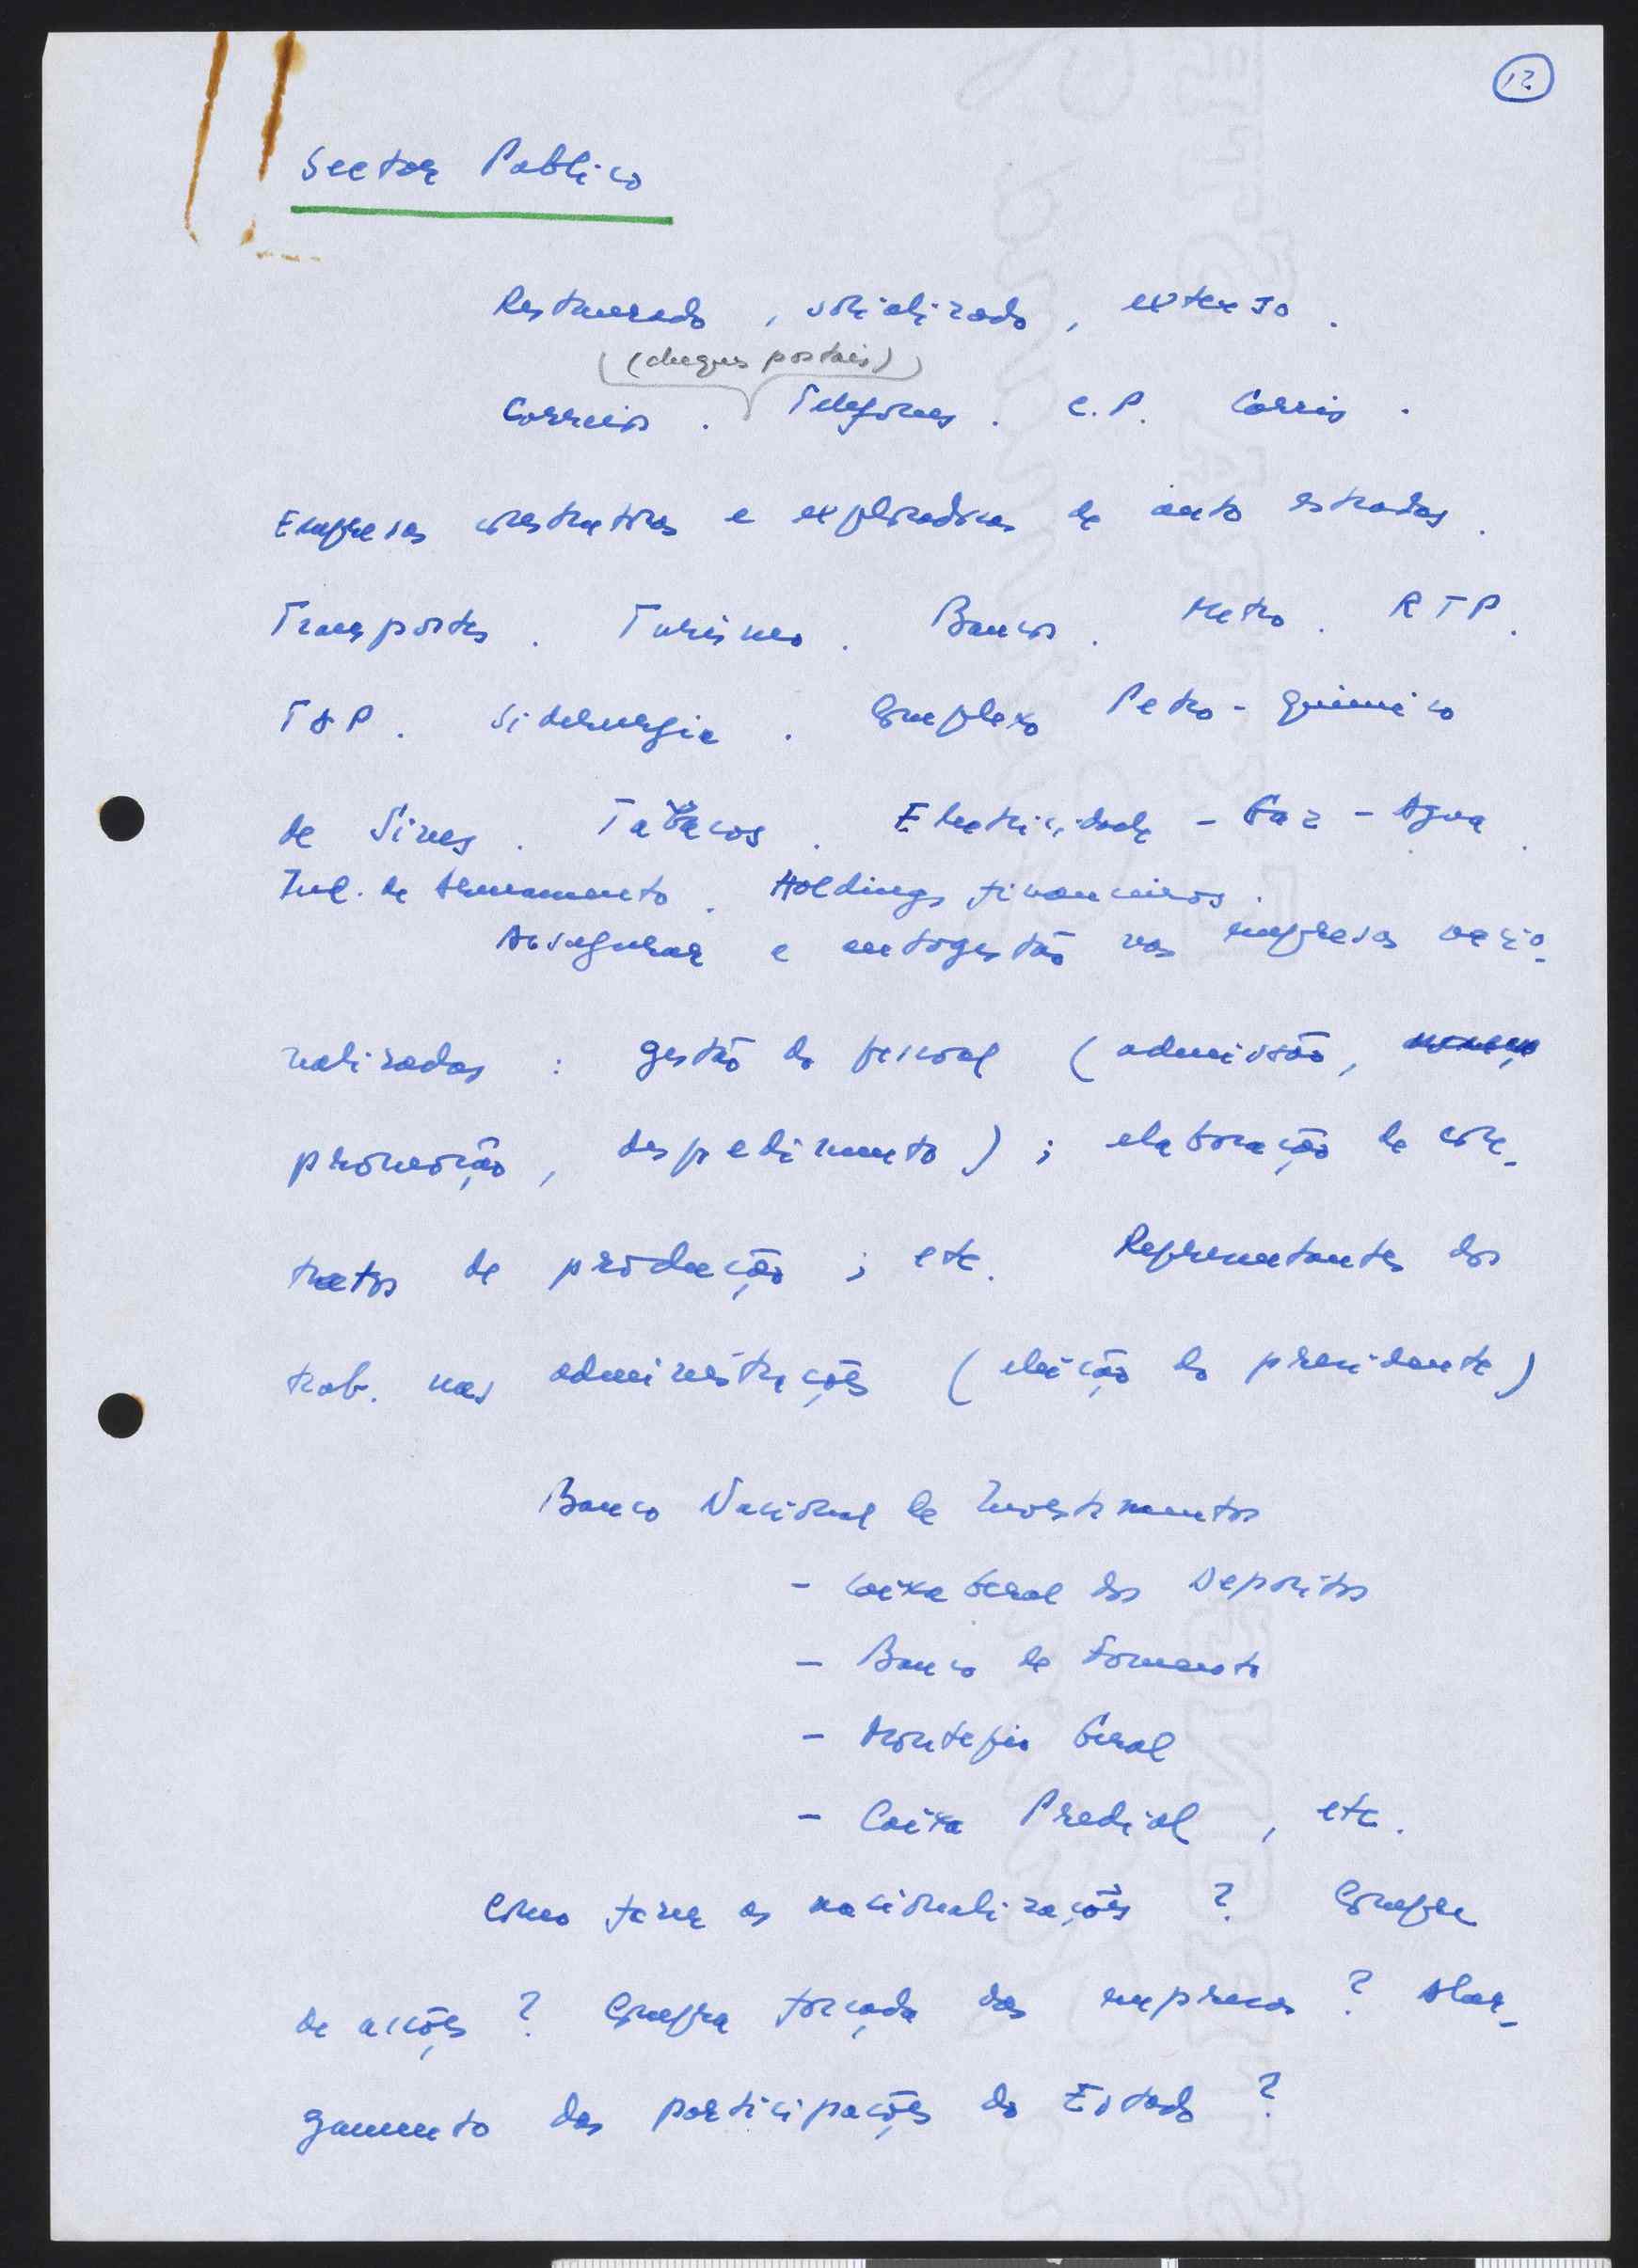 12
Sector Publico
Restruerado, socializado, extenso.
(cheques postais)
Correios. Telefones. C.P. Carris.
Empresas construtoras e exploradoras de auto estradas.
Transportes. Turismo. Bancos. Metro. RTP.
TAP. Siderurgia. Complexo Petro-quimico
de Sines. Tabacos. Electricidade - Gaz - Agua.
Ind. de Armamento. Holdings financeiros.
Assegurar a autogestão nas empresas nacio-
nalizadas: gestão do pessoal (admissão,
promoção, despedimento); elaboração de con-
tratos de produção; etc. Representantes dos
trab. nas administrações (eleição do presidente)
Banco Nacional de Investimentos
- Caixa Geral dos Depositos
- Banco de Fomento
- Montepio Geral
- Caixa Predial, etc.
Como fazer as nacionalizações? Compra
de acções? Compra forçada das empresas? Alar-
gamento das participações do Estado?